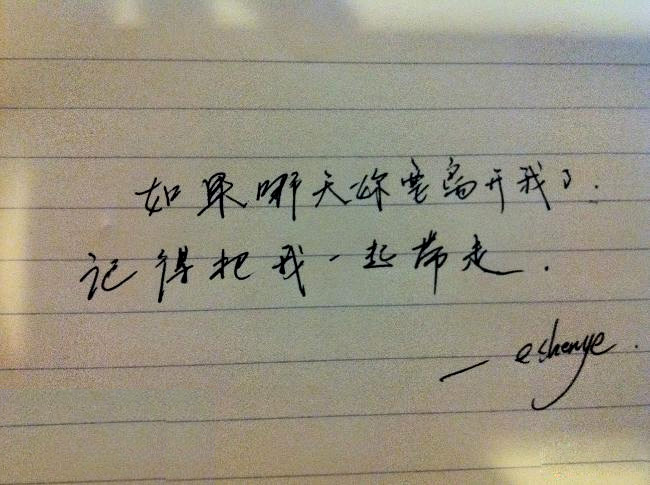 如果哪天妳要离开我了.
记得把我一起带走.
— eshenye.